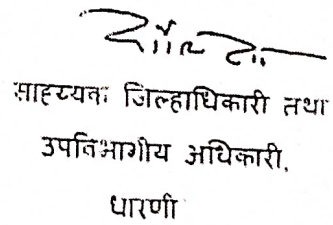 साहय्यक जिल्हाधिकारी तथा
उपविभागीय अधिकारी,
धारणी